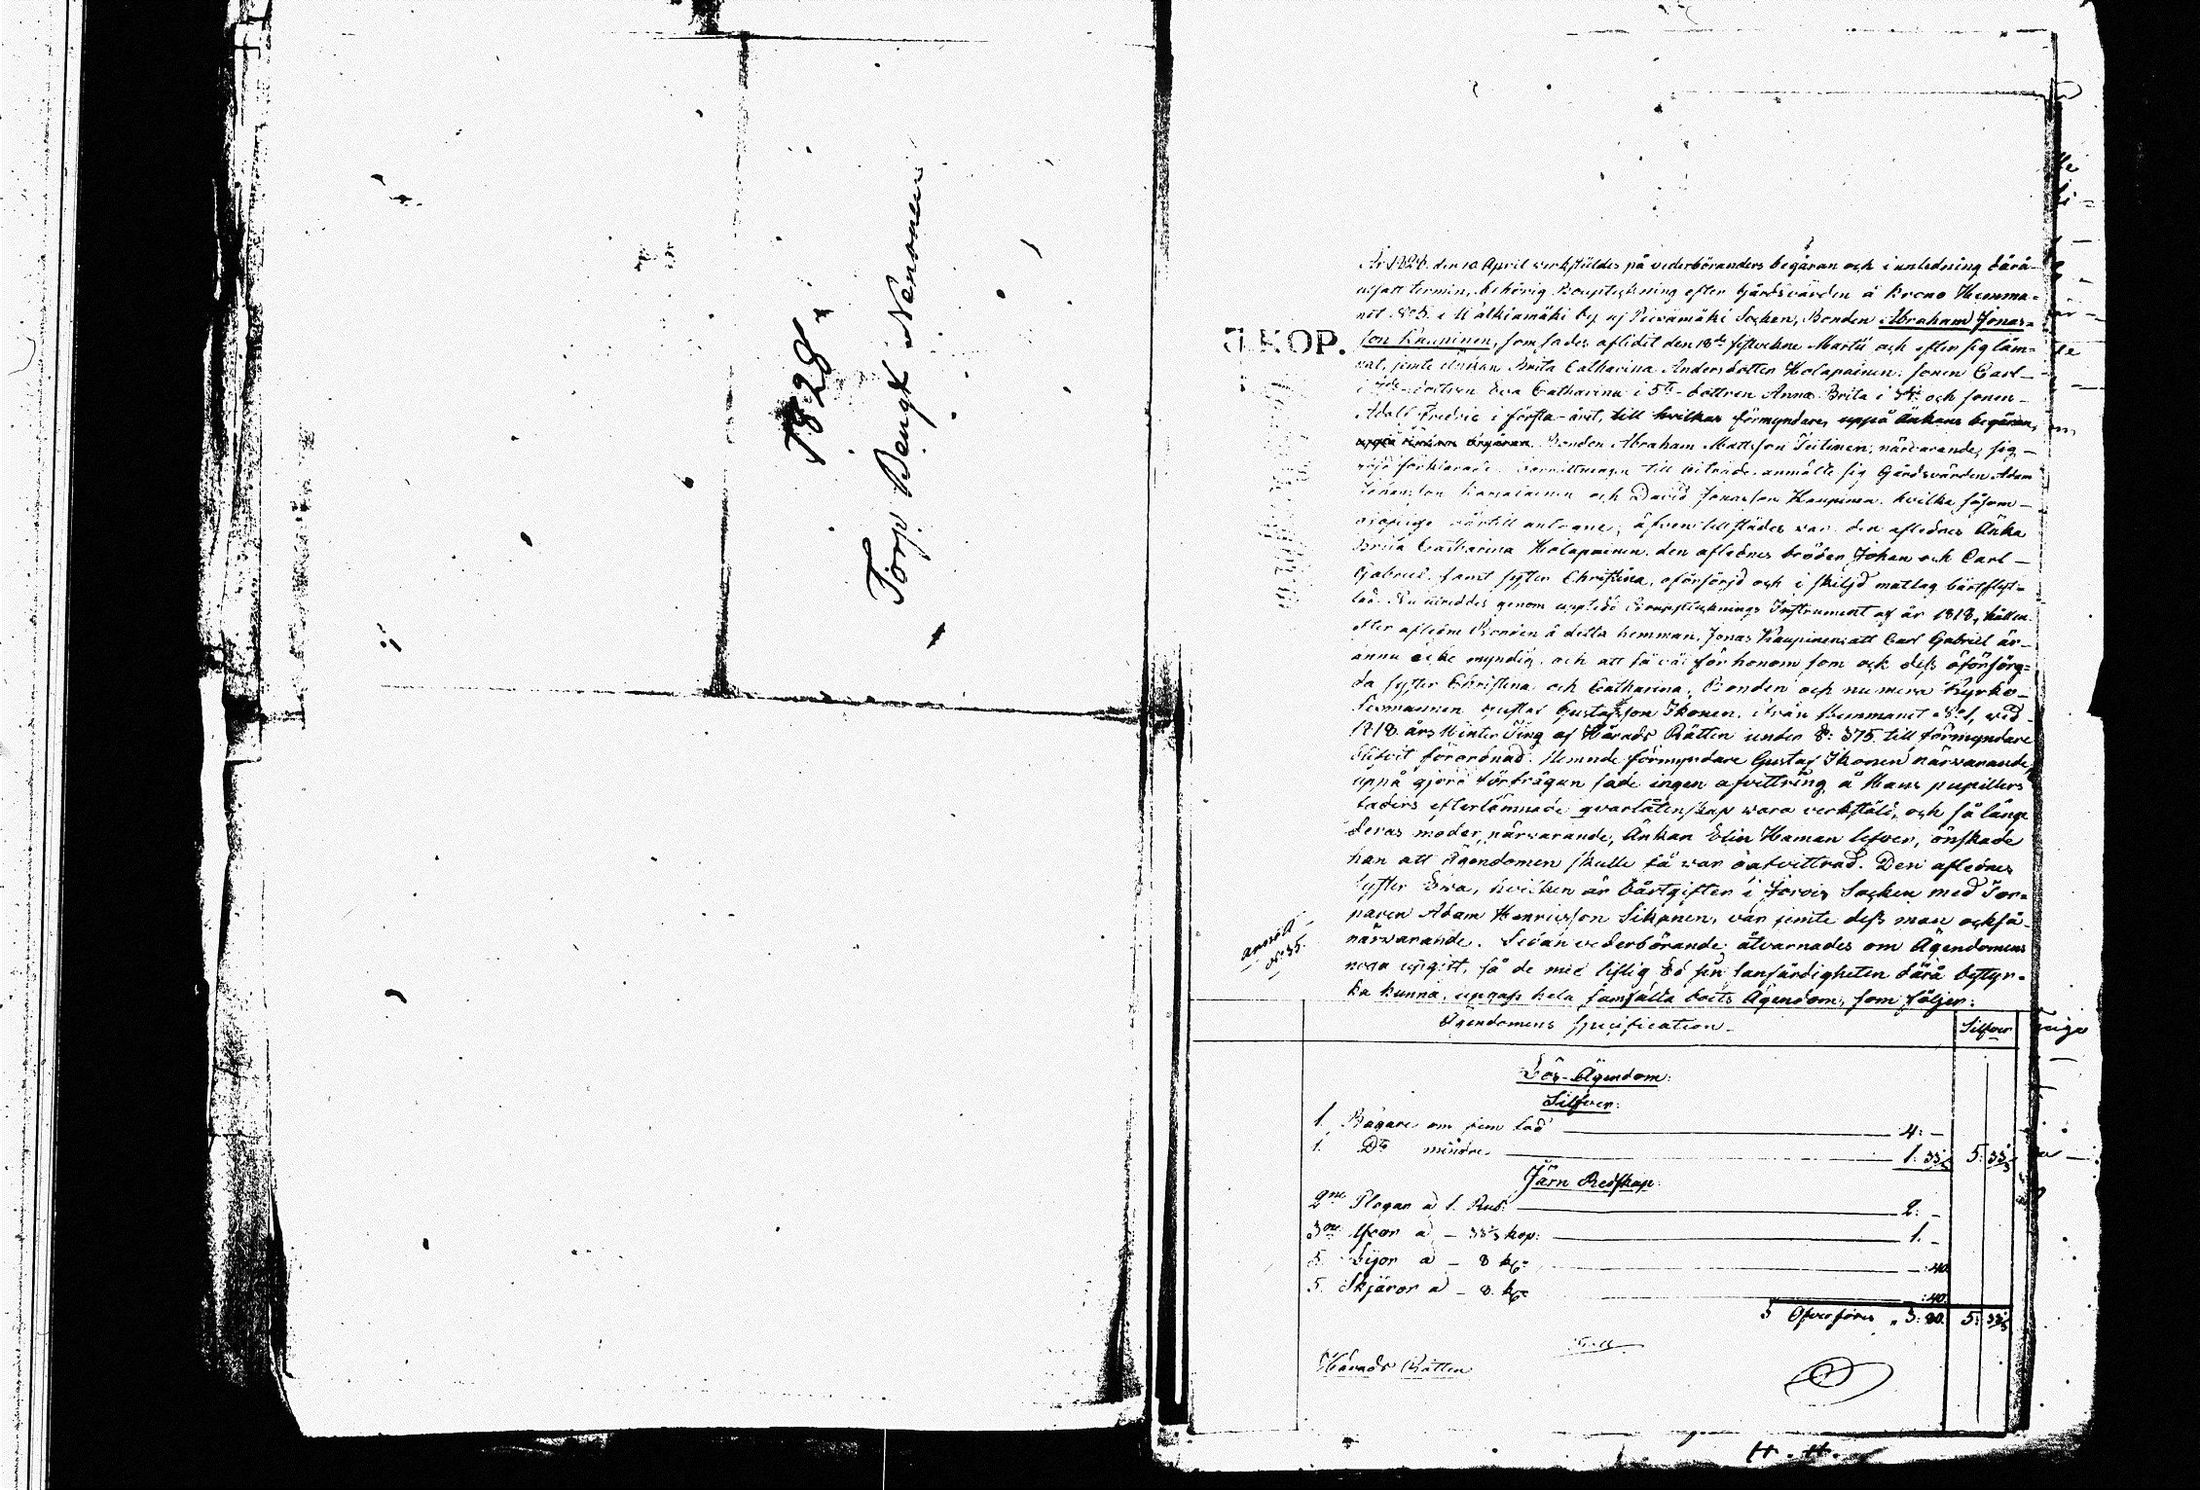 1828.
Torp. Bengt Nenonen
J. KOP.
År 1828. den 10 April verkstäldes på vederböranders begäran och i anledning därå
utsatt termin, behörig Bouptekning efter Gårdsvärden å Krono Hemma-
net N:o 5. i Wälkiamäki by af Piexämäki Socken, Bonden Abraham Jonas-
son Kauppinen, som sades aflidit den 18de sistvekne Martii och efter sig läm-
nat, jemte Enkan Brita Catharina Andersdotter Holopainen, sonen Carl
dottren Eva Catharina i 5te dottren Anna Brita i och sonen
Adolf Fredric i första året, till hvilkas förmyndare, uppå Änkans begäran,
Bonden Abraham Mattsson Teitinen, närvarande, sig
förklarade. Förrättningen till biträde anmälte sig Gårdsvärden Adam
Johansson och David Jonasson Kaupinen, hvilka såsom
därtill antogne; äfven tillstädes var den aflednes Änka
Brita Catharina Holapainen, den aflednes bröder, Johan och Carl
Gabriel, samt syster Christina, oförsörjd och i skiljd matlag bårtflyt-
tad. Nu utreddes genom uppteedt Bouptekknings Instrument af år 1818, hållen
efter afledne Bonden å detta hemman, Jonas Kaupinen, att Carl Gabriel är
ännu icke myndig, och att så väl för honom som ock dess oförsörg-
da syster Christina och Catharina, Bonden och numera Kyrko-
Gustaf Gustafsson Ikonen, ifrån Hemmanet N:o 1, vid
1818 års Winter Ting af Härads Rätten under §: 375. till förmyndare
blifvit förordnad. Nemnde förmyndare Gustaf Ikonen närvarande,
uppå gjord förfrågan sade ingen afvittring å Hans pupillers
faders efterlämnade qvarlåtenskap vara verkstäld, och så länge
deras moder, närvarande, Änkan Elin Haman lefver, önskade
han att Ägendomen skulle få var oafvittrad. Den aflednes
syster Eva, hvilken är bårtgifter i Jorois Socken med Tor-
paren Adam Henricsson Sikanen, var jemte dess man också
närvarande. Sedan vederbörande åtvarnades om Ägendomens
noga upgift, så de med liflig Ed sin sanfärdigheten därå bestyr-
ka kunna, upgafs hela samfälta boets Ägendom, som följer:
anmäld
N:o 35.
Ägendomens specification.
Silfver
Lös-Ägendom:
Silfver:
1. Bägare om fem lod 4: —
1. D:o mindre 1: 33⅓ 5: 33⅓
Järn Redskap:
2ne Plogar a 1. Rub: 2: —
3ne Yxor a — 33⅓ kop: 1: —
5. Lijor a — 8 k —: 40.
5. Skjäror a — 8. k —: 40.
Öfverföres 3: 80. 5: 33⅓
Härads Rätten
H. H.